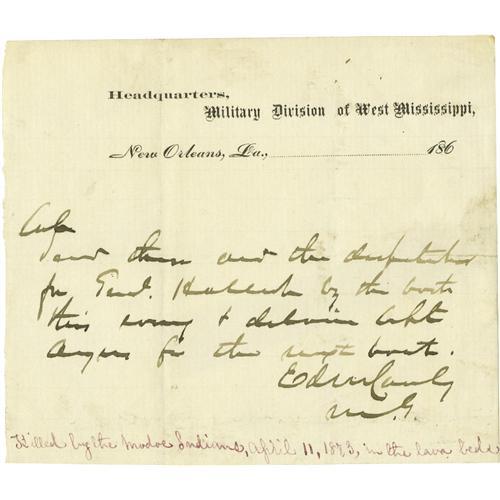 Headquarters,
Military Division of West Mississippi,
New Orleans, La., 186
Send these and the despatches
for Genl. Halleck by the boat
this evening & detain Capt
for the next boat.
Ed R S Canby
M. G.
Killed by the Modoc Indians, April 11, 1873, in the lava beds